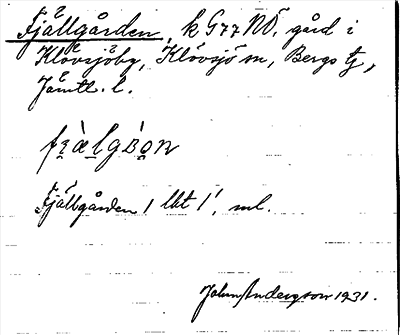 Fjällgården, k G77 NÖ. gård i
Klövsjöby, Klövsjö sn, Bergs tg,
Jämtl. l.
Fjällgården 1 lkt 1', ml.
John Anderson 1931.